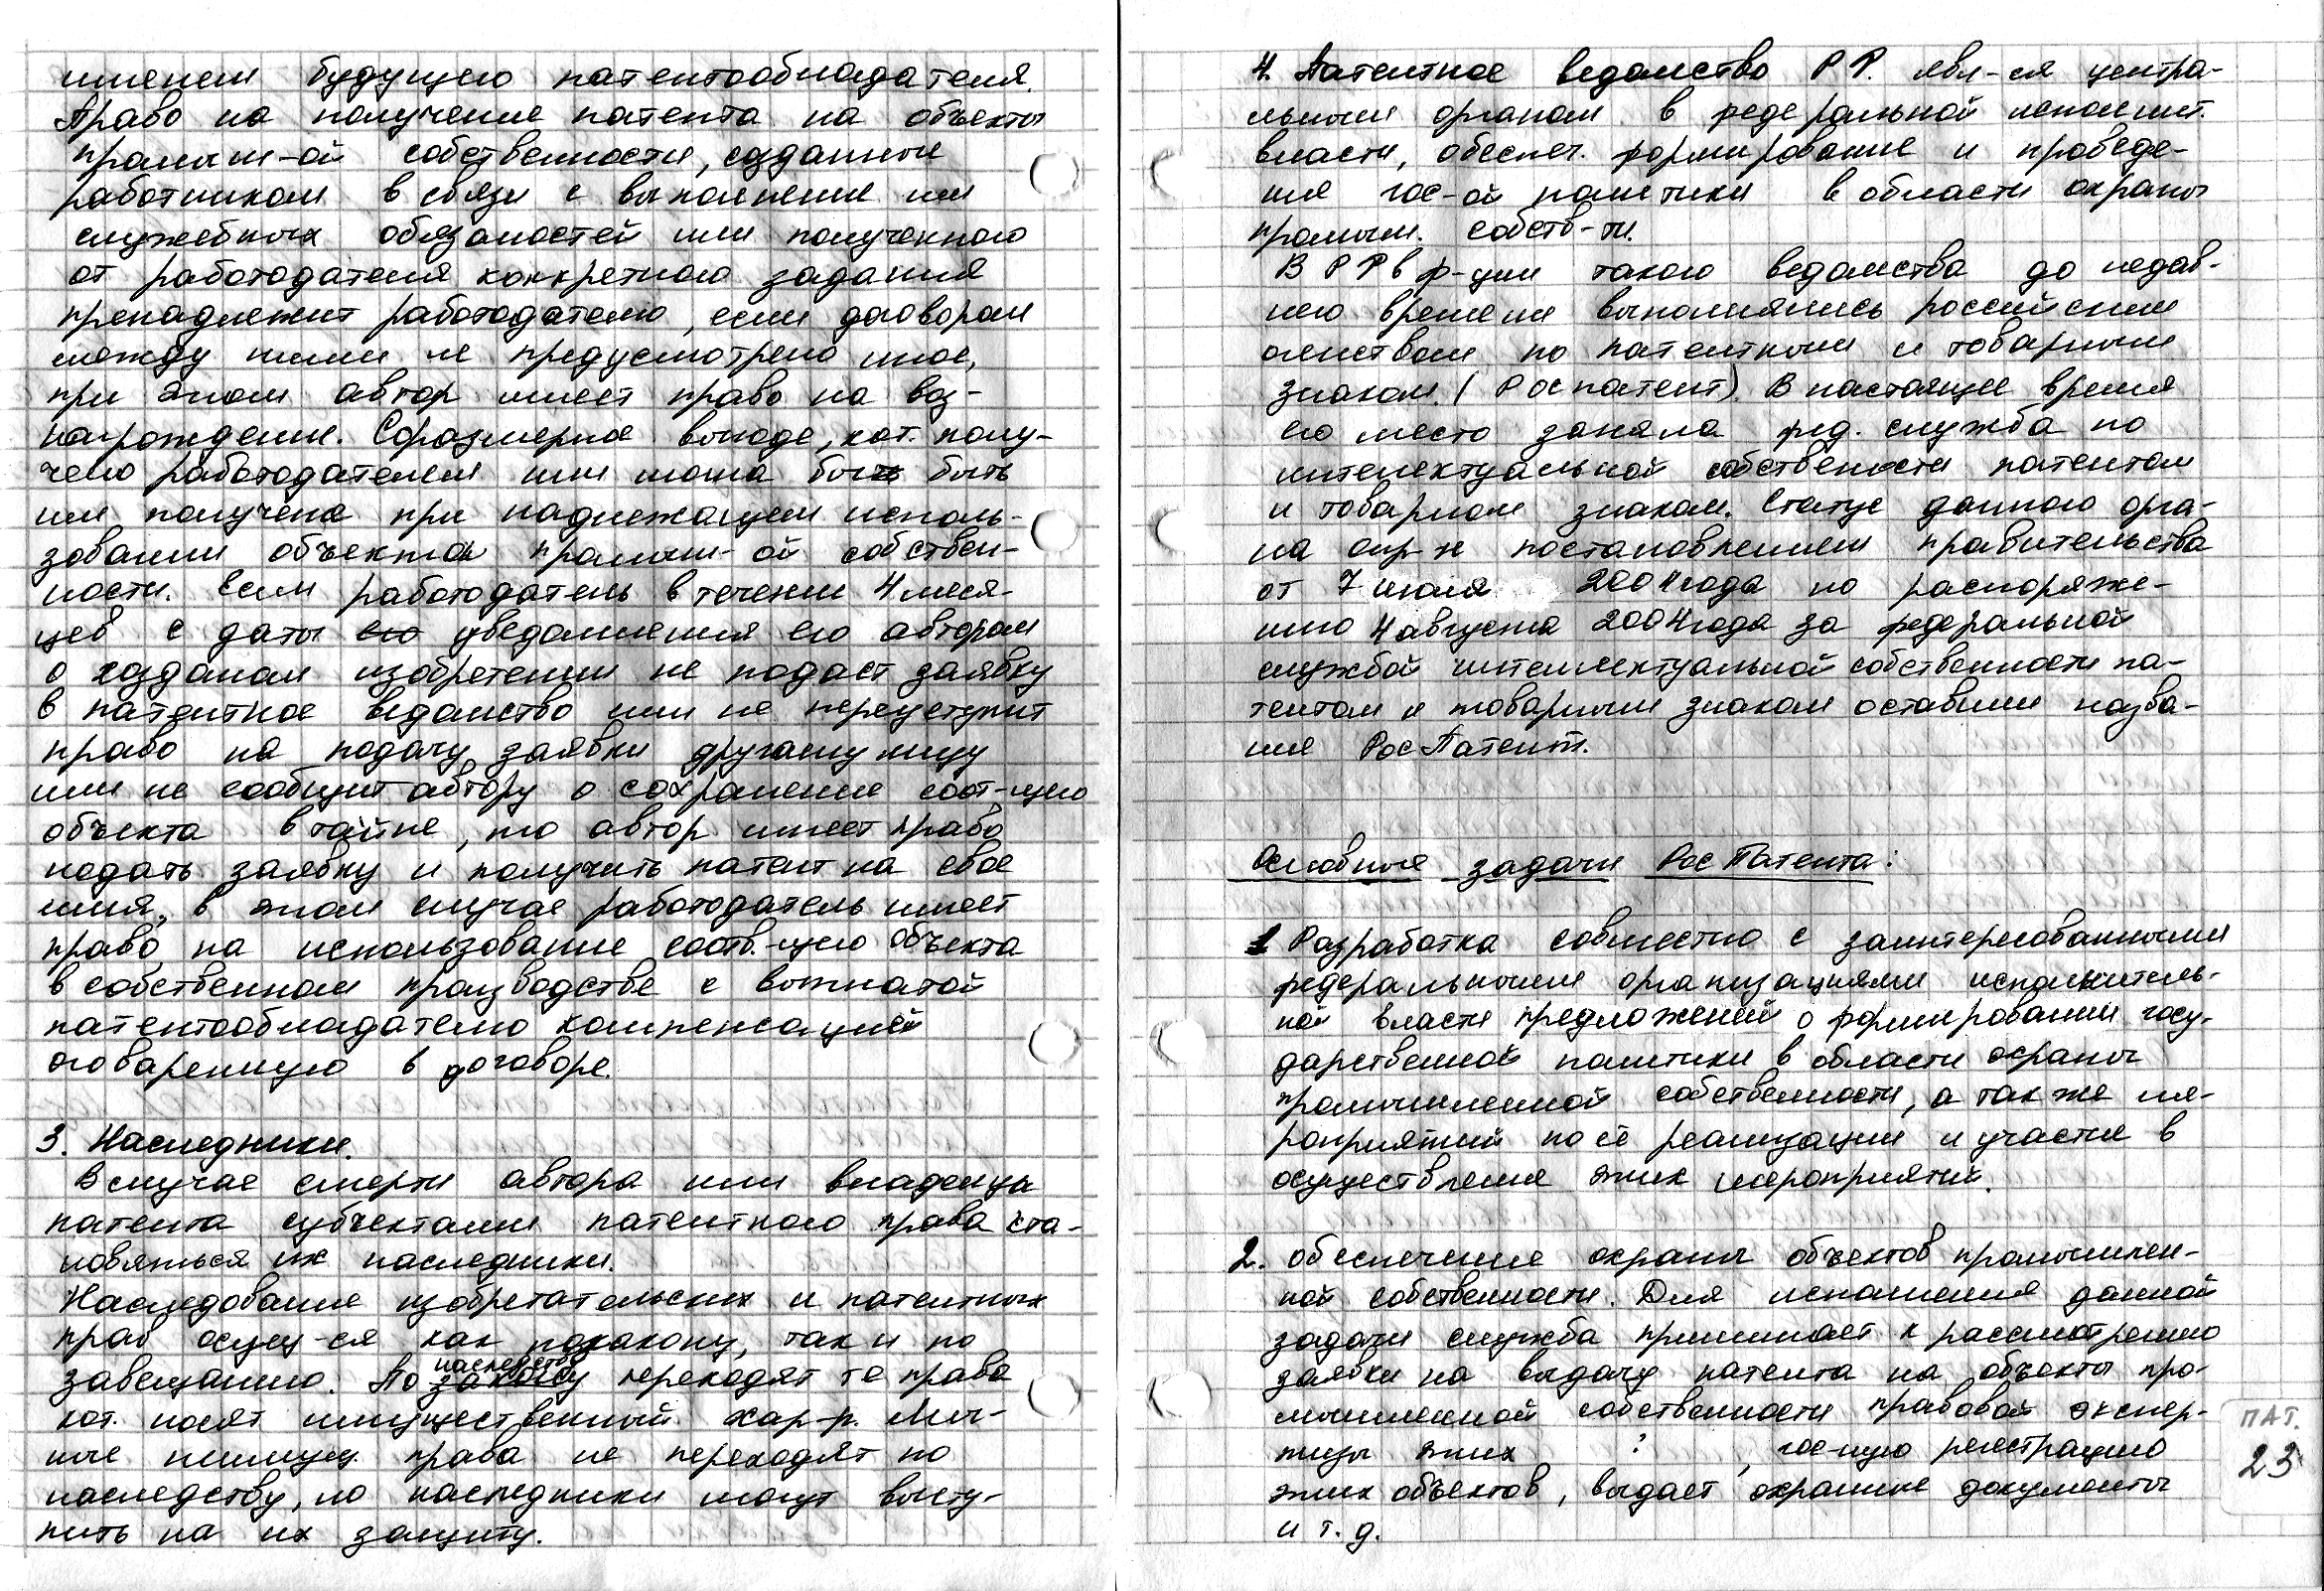 именем будущего патентообладателя.
Право на получение патента на объекты
промышл-ой собственности, созданные
работником в связи с выполнение им
служебных обязаностей или полученного
от работодателя конкретного задания
пренадлежит работодателю, если договором
между ними не предусмотрено иное,
при этом автор имеет право на воз-
награждение. Соразмерное выгоде, кот. полу-
чено работодателем или могла быть быть
им получена при надлежащем исполь-
зовании объекта промышл-ой собствен-
ности. Если работодатель в течении 4 меся-
цев с даты его уведомления его автором
о созданом изобретении не подаст заявку
в патентное ведомство или не переуступит
право на подачу заявки другому лицу
или не сообщит автору о сохранение соот-щего
объекта в тайне, то автор имеет право
подать заявку и получить патент на свое
имя, в этом случае работодатель имеет
право на использование соотв.-щего объекта
в собственном производстве с выплатой
патентообладателю компенсацией
оговаренную в договоре.
3. Наследники.
В случае смерти автора или владельца
патента субъектами патентного права ста-
новяться их наследники.
Наследование изобретательских и патентных
прав осущ-ся как по закону, так и по
завещанию. По закону наследству переходят те права
кот. носят имущественный хар-р. Лич-
ные неимущ. права не переходят по
наследству, но наследники могут высту-
пить на их защиту.
4. Патентное ведомство РФ. явл-ся центра-
льным органом в федеральной исполнит.
власти, обеспеч. формирование и проведе-
ние гос-ой политики в области охраны
промышл. собств-ти.
В РФ в ф-ции такого ведомства до недав-
него времени выполнялись российским
агенством по патентным и товарным
знакам. (Роспатент). В настоящее время
его место заняла фед. служба по
интелектуальной собственности патентам
и товарном знакам. Статус данного орга-
на опр-н постановлением правительства
от 7 июля 2004 года по распоряже-
нию 4 августа 2004 года за федеральной
службой интеллектуальной собственности па-
тентам и товарным знакам оставили назва-
ние РосПатент.
Основные задачи РосПатента:
1 Разработка совместно с заинтересованными
федеральными организациями исполнитель-
ной власти предложений о формировании госу-
дарственной политики в области охраны
промышленной собственности, а так же ме-
роприятий по её реализации и участия в
осуществление этих мероприятий.
2. обеспечение охраны объектов промышлен-
ной собственности. Для исполнения данной
задачи служба принимает к рассмотрению
заявки на выдачу патента на объекты про-
мышленной собственности правовой экспер-
тизы этих ? , гос-ную регестрацию
этих объектов, выдает охранные документы
и т. д.
ПАТ.
23